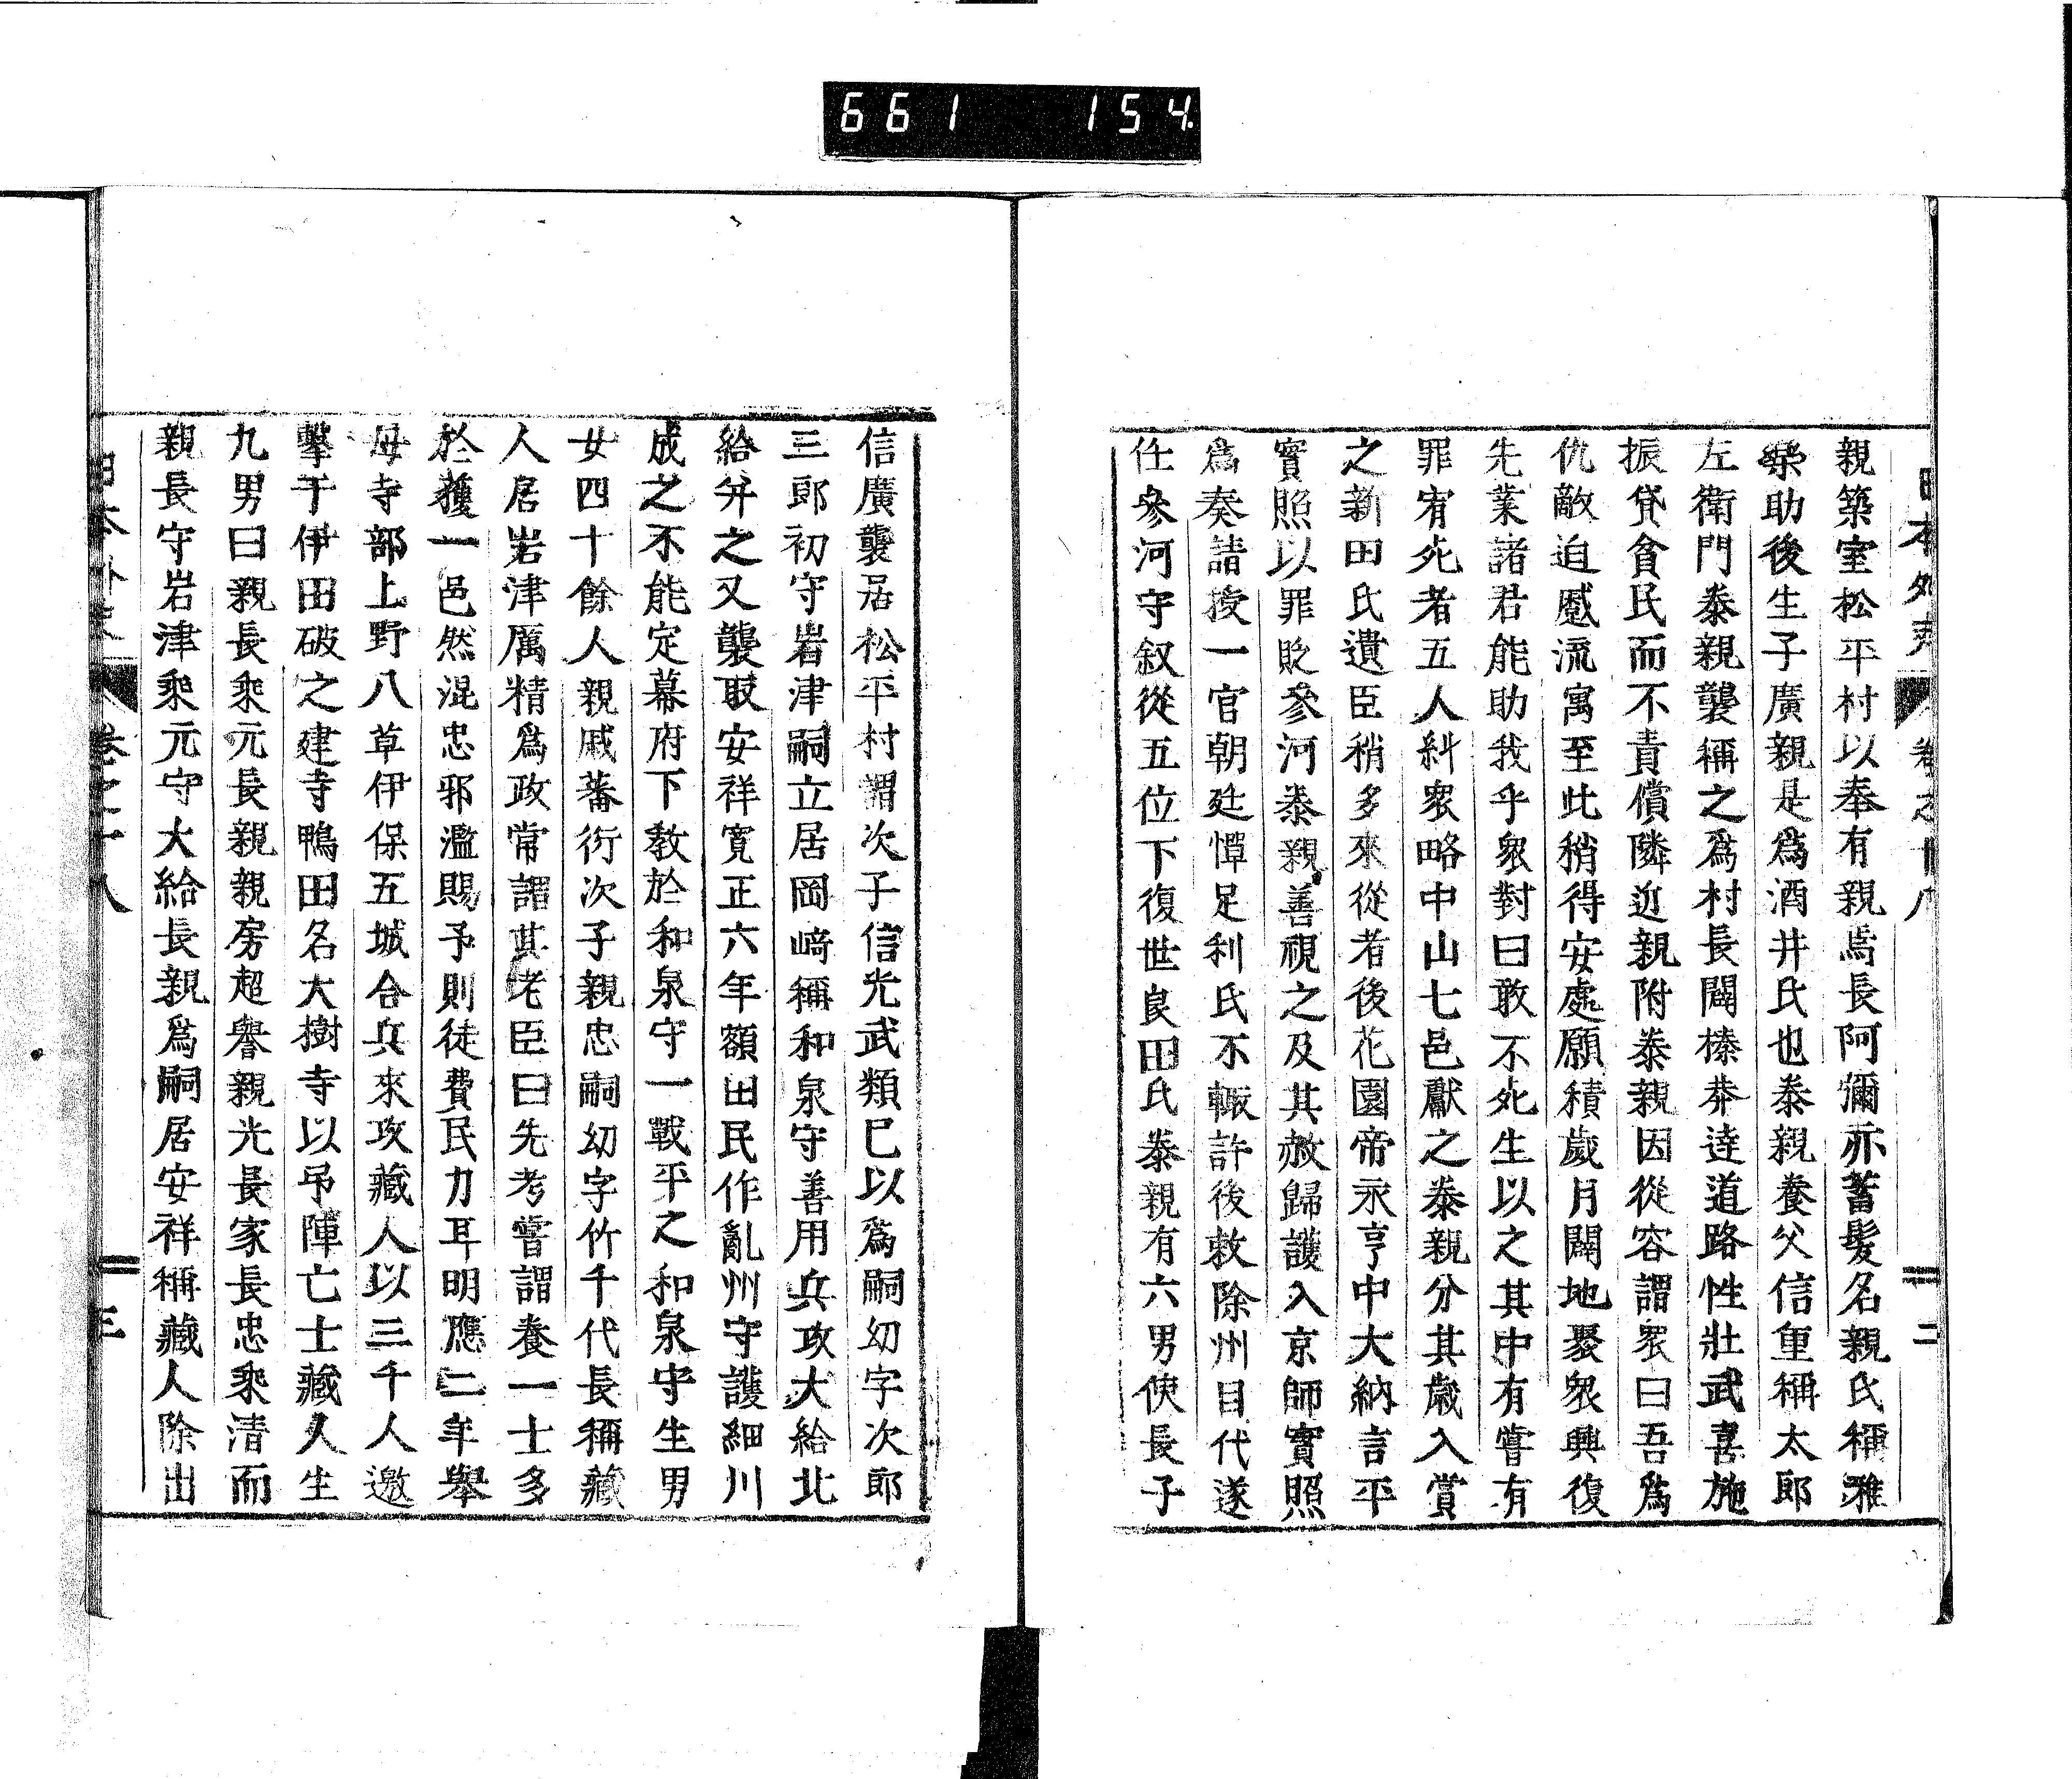 661 154
日本外史 卷之十八 二
親築室松平村以奉有親焉長阿彌亦蓄髮名親氏稱雅
樂助後生子廣親是爲酒井氏也泰親養父信重稱太郎
左衛門泰親襲稱之爲村長闢榛莽達道路性壯武喜施
振貸貧民而不責償隣近親附泰親因從容謂衆曰吾爲
仇敵迫蹙流寓至此稍得安處願積歲月闢地聚衆興復
先業諸君能助我乎衆對曰敢不死生以之其中有嘗有
罪宥死者五人糾衆略中山七邑獻之泰親分其歲入賞
之新田氏遺臣稍多來從者後花園帝永享中大納言平
實照以罪貶參河泰親善視之及其赦歸護入京師實照
爲奏請授一官朝廷憚足利氏不輙許後敕除州目代遂
任參河守叙從五位下復世良田氏泰親有六男使長子
信廣襲居松平村謂次子信光武類已以爲嗣幼字次郎
三郎初守岩津嗣立居岡崎稱和泉守善用兵攻大給北
給并之又襲取安祥寬正六年額田民作亂州守護細川
成之不能定幕府下教於和泉守一戰平之和泉守生男
女四十餘人親戚蕃衍次子親忠嗣幼字竹千代長稱藏
人居岩津厲精爲政常謂其老臣曰先考嘗謂養一士多
於獲一邑然混忠邪濫賜予則徒費民力耳明應二年舉
母寺部上野八草伊保五城合兵來攻藏人以三千人邀
擊于伊田破之建寺鴨田名大樹寺以弔陣亡士藏人生
九男曰親長乘元長親親房超譽親光長家長忠乘清而
親長守岩津乘元守大給長親爲嗣居安祥稱藏人除出
日本外史 卷之十八 三